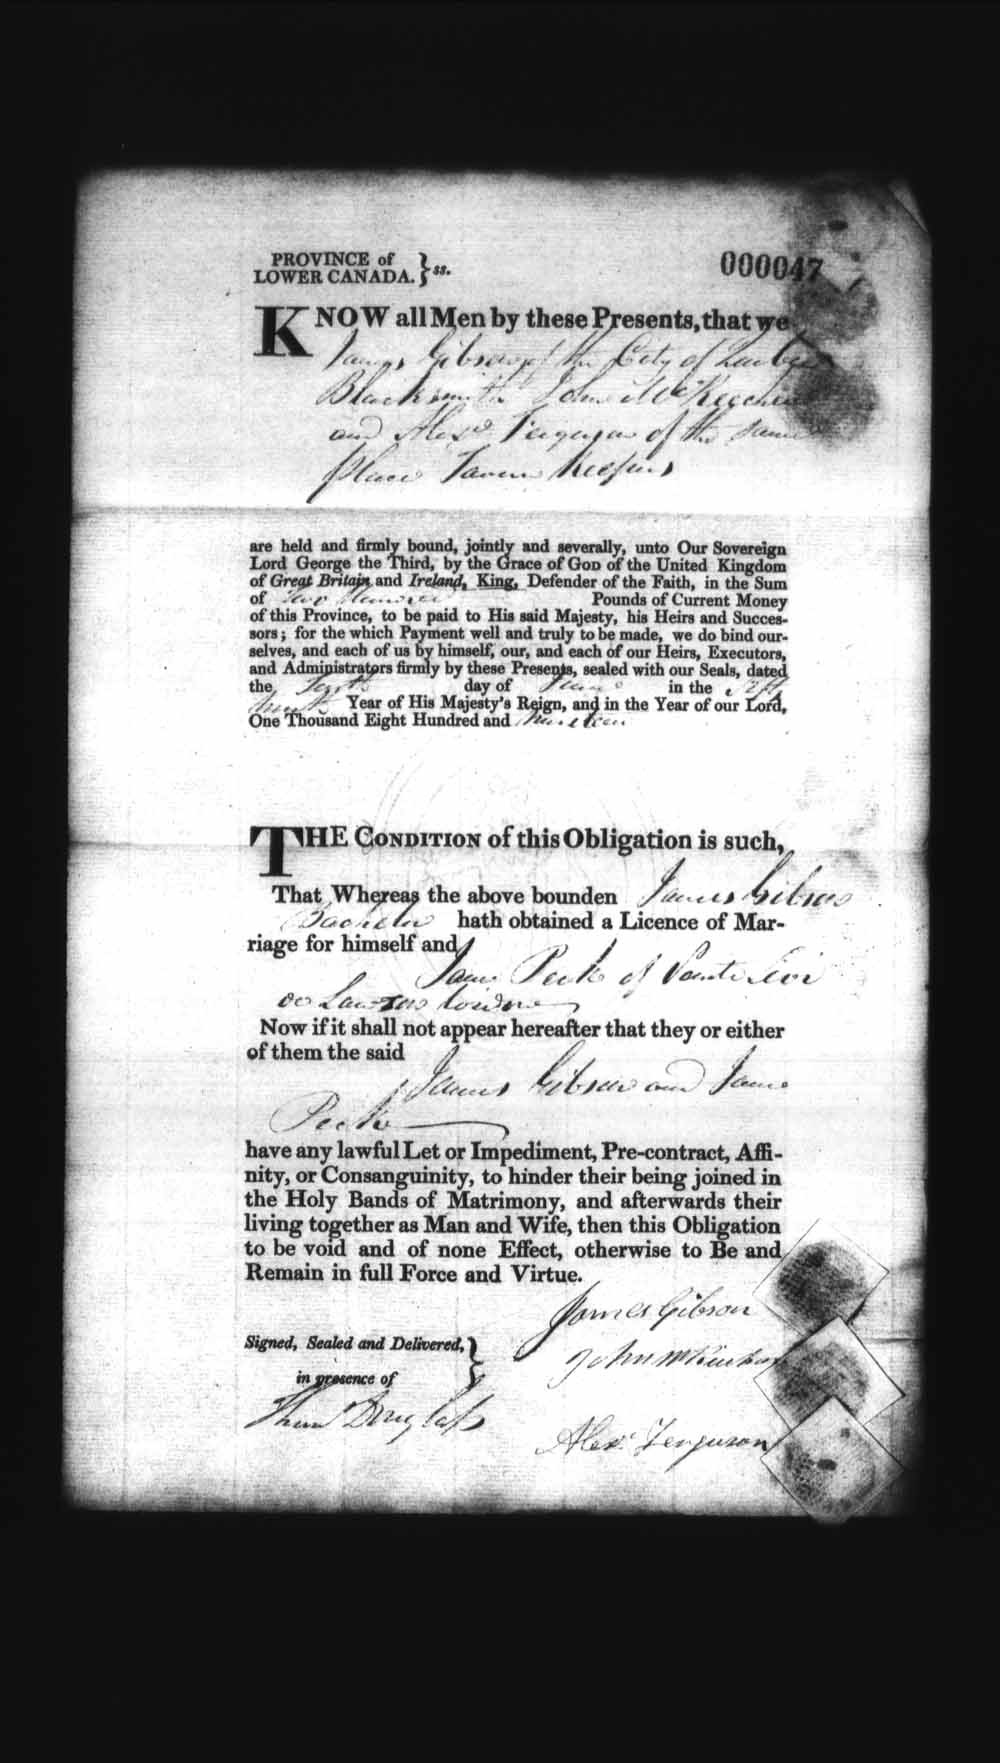 PROVINCE of
LOWER CANADA. } ss.
000047
KNOW all Men by these Presents, that we
James Gibson of the City of Quebec
Blacksmith John
and Alexr. Ferguson of the same
place Tavern Keepers
are held and firmly bound, jointly and severally, unto Our Sovereign
Lord George the Third, by the Grace of GOD of the United Kingdom
of Great Britain and Ireland, King, Defender of the Faith, in the Sum
of Two Hundred Pounds of Current Money
of this Province, to be paid to His said Majesty, his Heirs and Succes-
sors; for the which Payment well and truly to be made, we do bind our-
selves, and each of us by himself, our, and each of our Heirs, Executors,
and Administrators firmly by these Presents, sealed with our Seals, dated
the day of June in the fifty
ninth Year of His Majesty's Reign, and in the Year of our Lord,
One Thousand Eight Hundred and nineteen
THE CONDITION of this Obligation is such,
That Whereas the above bounden James Gibson
Bachelor hath obtained a Licence of Mar-
riage for himself and
Jane Peek of Pointe Levi
or
Now if it shall not appear hereafter that they or either
of them the said
James Gibson and Jane
Peek
have any lawful Let or Impediment, Pre-contract, Affi-
nity, or Consanguinity, to hinder their being joined in
the Holy Bands of Matrimony, and afterwards their
living together as Man and Wife, then this Obligation
to be void and of none Effect, otherwise to Be and
Remain in full Force and Virtue.
James Gibson
Signed, Sealed and Delivered, }
John
in presence of
Douglass
Alexr. Ferguson